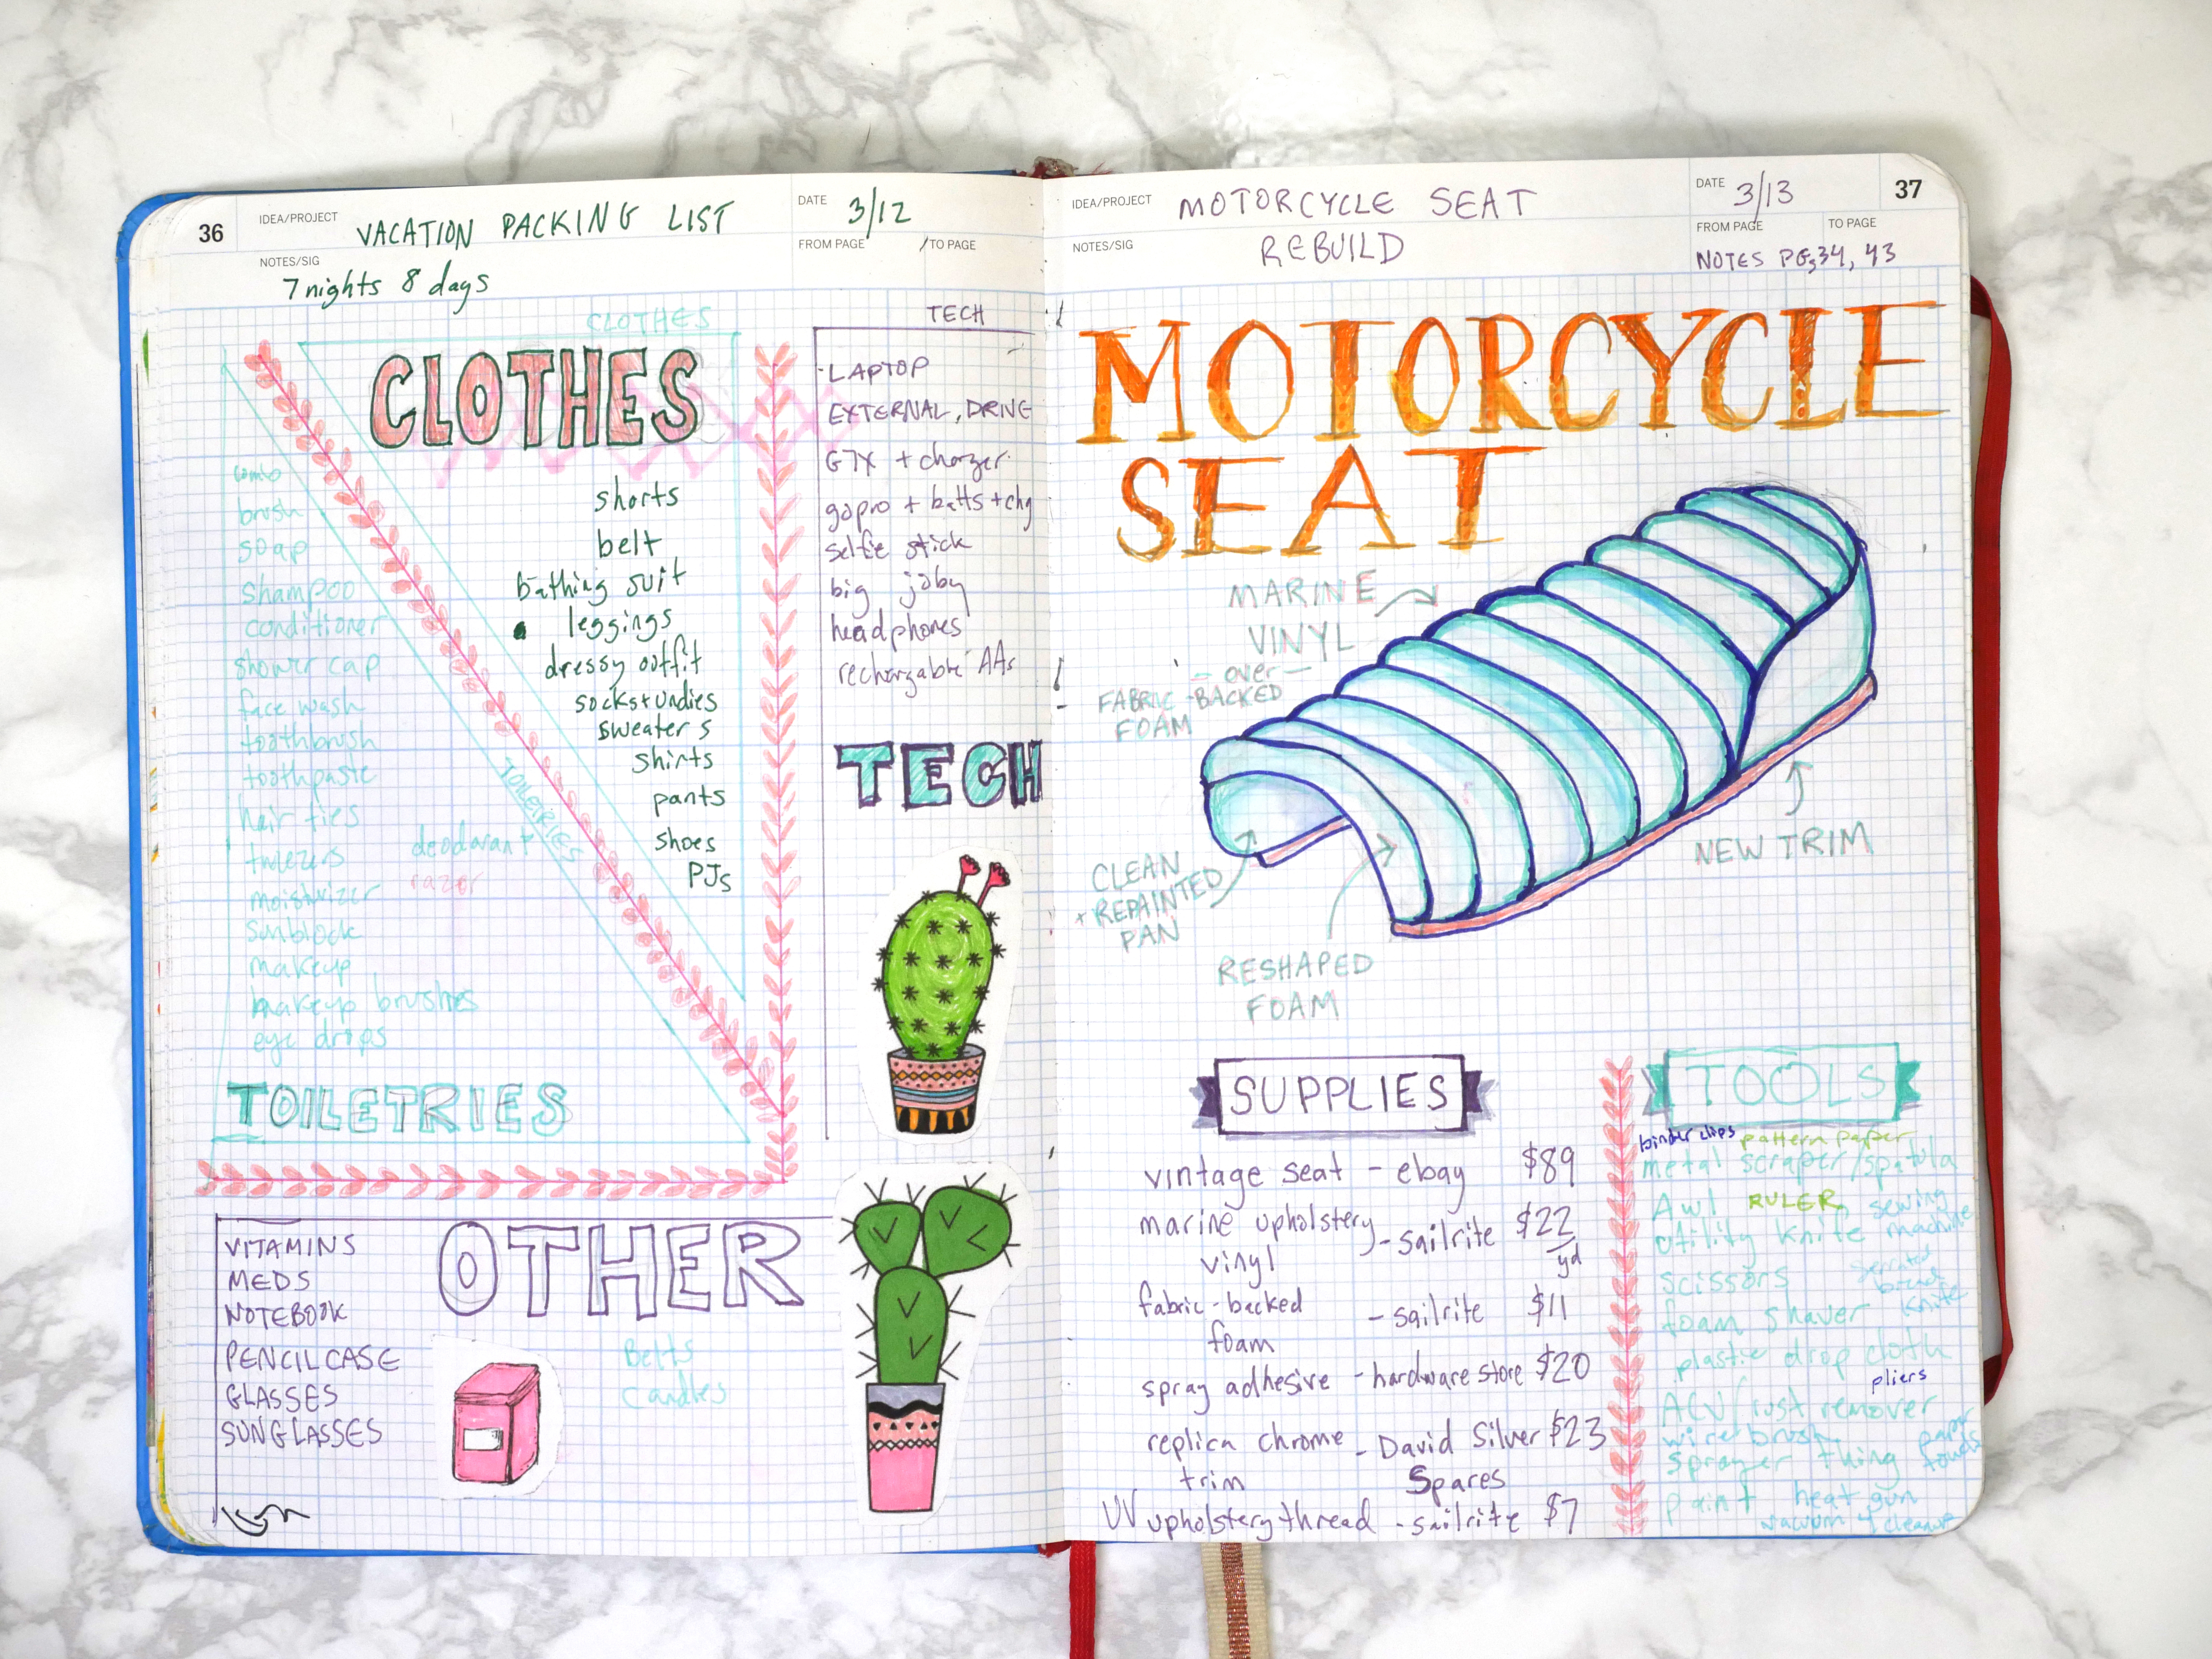 36
IDEA/PROJECT
VACATION PACKING LIST
DATE
3/12
NOTES/SIG
FROM PAGE
TO PAGE
7 nights 8 days
CLOTHES
CLOTHES
shorts
belt
bathing suit
leggings
dressy outfit
socks+undies
sweaters
shirts
pants
shoes
PJs
TOILETRIES
combo
brush
soap
shampoo
conditioner
shower cap
face wash
toothbrush
toothpaste
hair ties
tweezers
deodorant
moisturizer
razor
sunblock
makeup
makeup brushes
eye drops
TOILETRIES
TECH
LAPTOP
EXTERNAL DRIVE
G7X + charger
gopro + batts + chg
selfie stick
big joby
headphones
rechargable AAs
TECH
OTHER
VITAMINS
MEDS
NOTEBOOK
PENCILCASE
GLASSES
SUNGLASSES
Belts
Candles
37
IDEA/PROJECT
MOTORCYCLE SEAT
DATE
3/13
NOTES/SIG
REBUILD
FROM PAGE
TO PAGE
NOTES PG 34, 43
MOTORCYCLE
SEAT
MARINE
VINYL
- over -
FABRIC-BACKED
FOAM
CLEAN
+ REPAINTED
PAN
RESHAPED
FOAM
NEW TRIM
SUPPLIES
vintage seat - ebay $89
marine upholstery vinyl - sailrite $22/yd
fabric-backed foam - sailrite $11
spray adhesive - hardware store $20
replica chrome trim - David Silver Spares $23
UV upholstery thread - sailrite $7
TOOLS
binder clips pattern paper
metal scraper/spatula
Awl RULER sewing machine
Utility knife
scissors serrated bread knife
foam shaver
plastic drop cloth
pliers
ACV/rust remover
wire brush paper towels
sprayer thing
paint heat gun
vacuum 4 cleanup